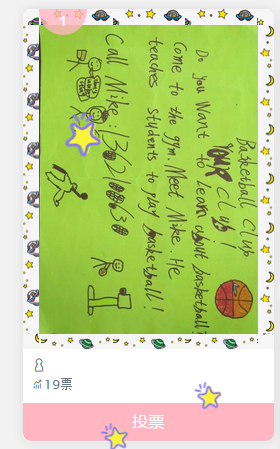 1
Basketball Club
YOUR Club!
Do you want to learn about basketball?
Come to the gym. Meet Mike. He
teaches students to play basketball!
Call Mike:
19票
投票